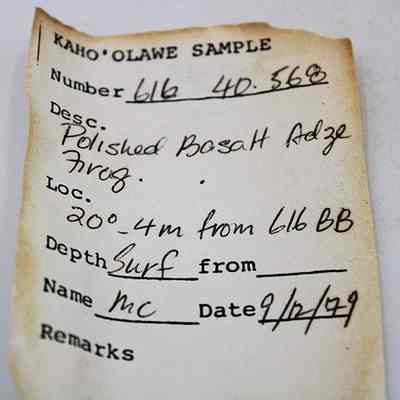 KAHO'OLAWE SAMPLE
Number 616 40.568
Desc.
Polished Basalt Adze
Frag.
Loc.
20° - 4m from 616 BB
Depth Surf from
Name MC Date 9/12/79
Remarks